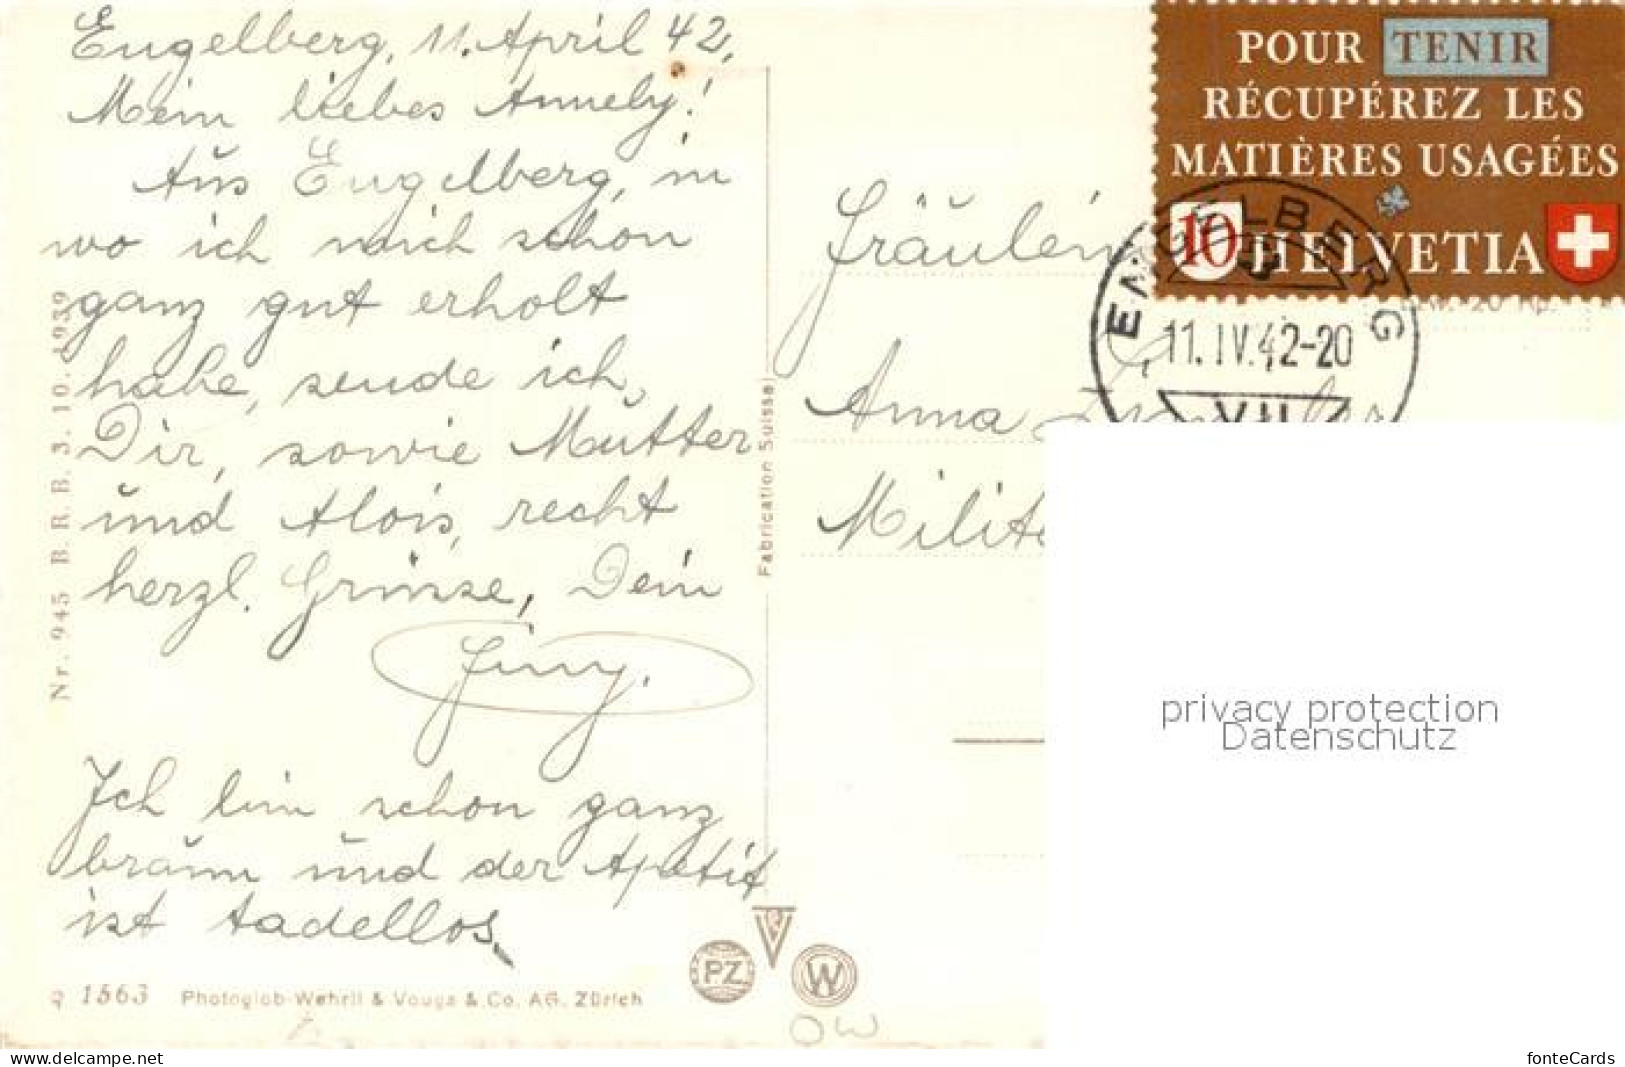 Engelberg, 11. April 42,
Mein liebes Annely!
Aus Engelberg, in
wo ich mich schon
ganz gut erholt
habe, sende ich,
Dir, sowie Mutter
und Alois, recht
herzl. Grüsse, Dein
Ich bin schon ganz
braun und der Apetit
ist tadellos.
Nr. 945 B. R. B. 3. 10. 1939
Fabrication Suisse
1563 Photoglob-Wehrli & Vouga & Co. AG. Zürich
P.Z.
V
W
OW
POUR TENIR
RÉCUPÉREZ LES
MATIÈRES USAGÉES
10 HELVETIA
ENGELBERG
11.IV.42-20
VII
Fräulein
Anna
Milit
privacy protection
Datenschutz
www.delcampe.net
fonteCards